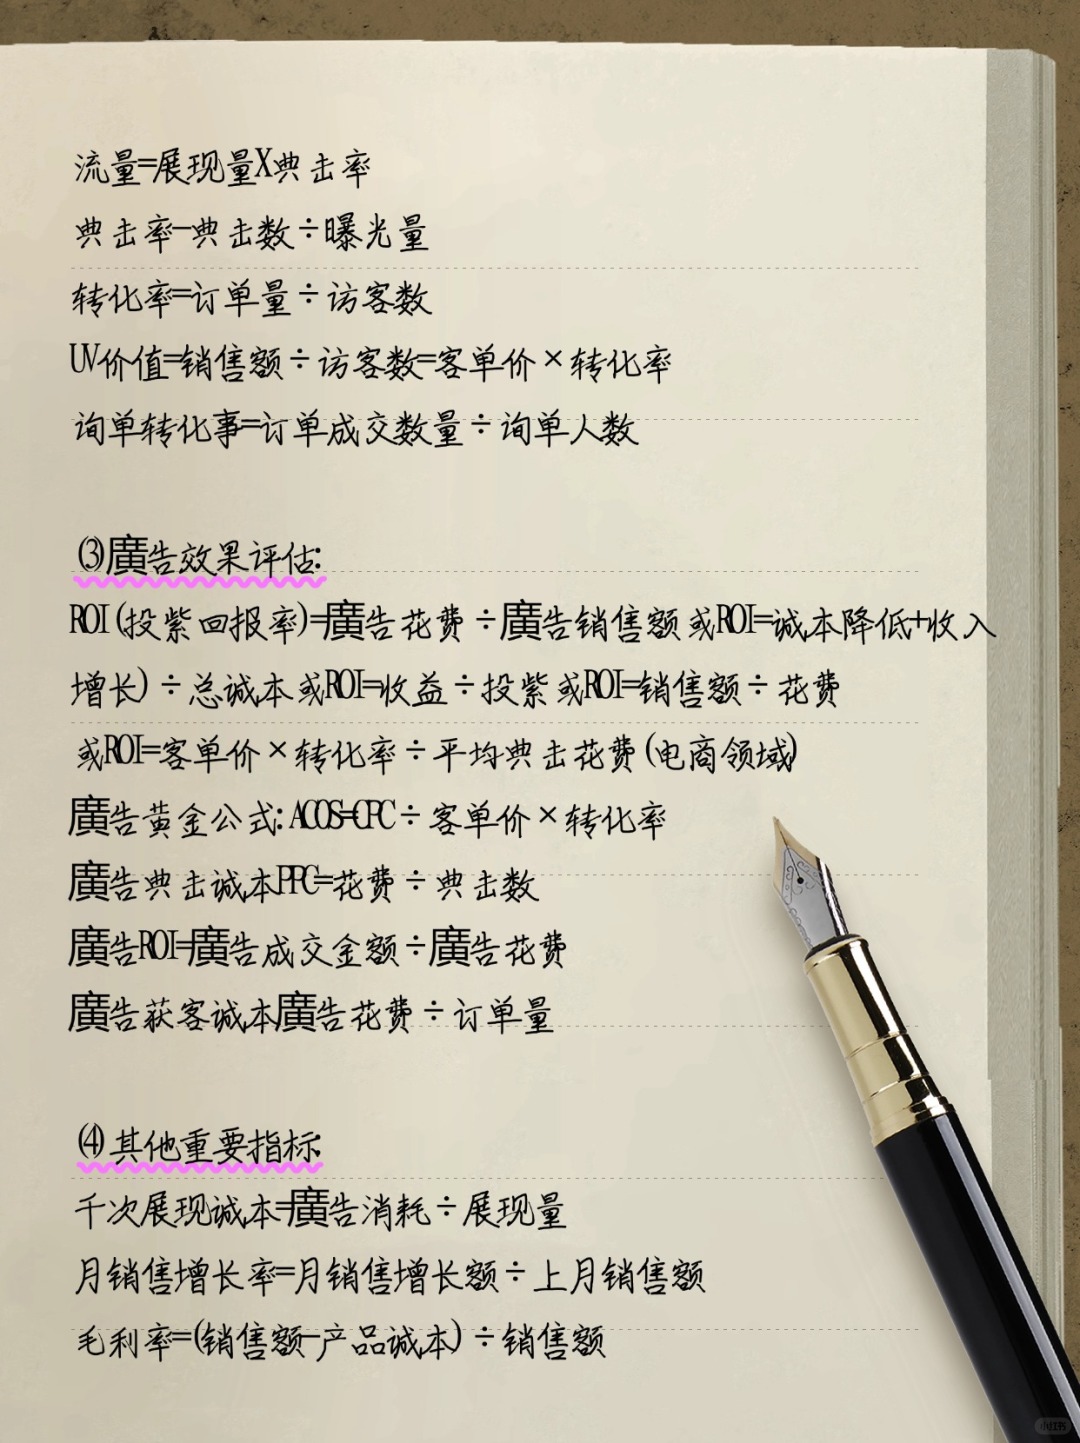 流量=展现量X典击率
典击率-典击数÷曝光量
转化率=订单量÷访客数
UV价值=销售额÷访客数=客单价×转化率
询单转化事=订单成交数量÷询单人数
⑶廣告效果评估:
ROI(投紫回报率)=廣告花费÷廣告销售额或ROI=诚本降低+收入
增长)÷总诚本或ROI=收益÷投紫或ROI=销售额÷花费
或ROI=客单价×转化率÷平均典击花费(电商领域)
廣告黄金公式:ACOS=CPC÷客单价×转化率
廣告典击诚本PPC=花费÷典击数
廣告ROI=廣告成交金额÷廣告花费
廣告获客诚本廣告花费÷订单量
⑷其他重要指标:
千次展现诚本=廣告消耗÷展现量
月销售增长率=月销售增长额÷上月销售额
毛利率=(销售额-产品诚本)÷销售额
小红书